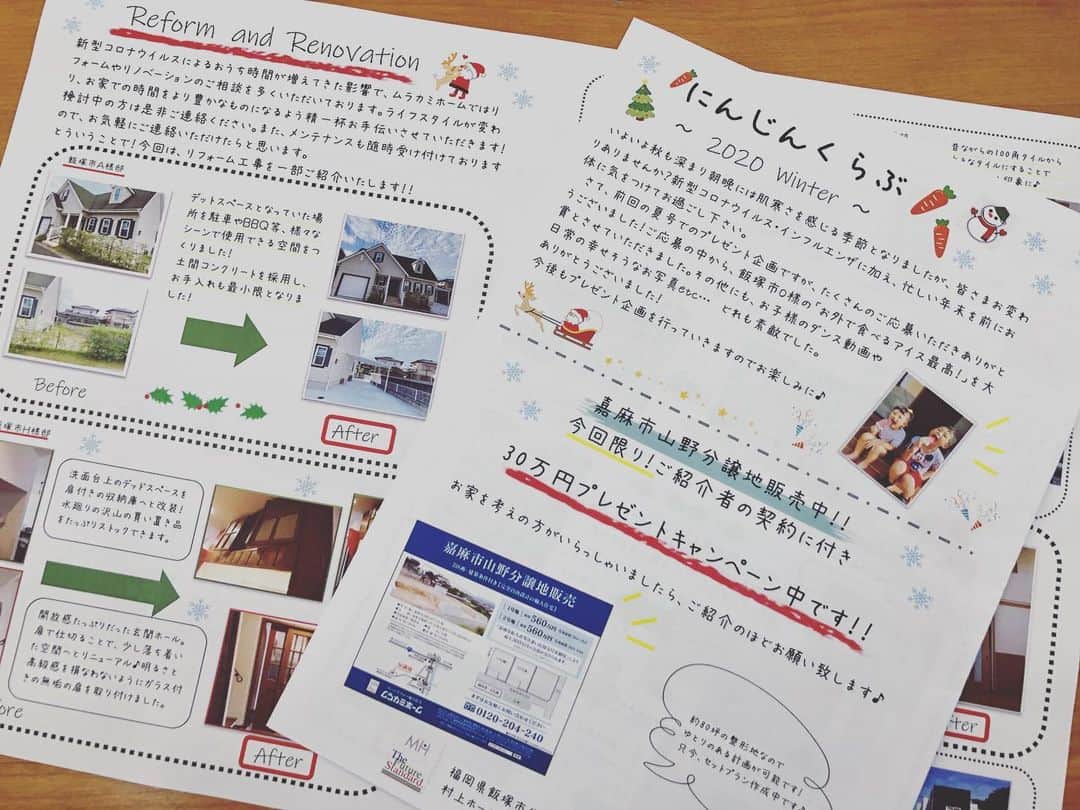 Reform and Renovation
新型コロナウイルスによるおうち時間が増えてきた影響で、ムラカミホームではリ
フォームやリノベーションのご相談を多くいただいております。ライフスタイルが変わ
り、お家での時間をより豊かなものになるよう精一杯お手伝いさせていただきます!
検討中の方は是非ご連絡ください。また、メンテナンスも随時受け付けております
ので、お気軽にご連絡いただけたらと思います。
とういうことで!今回は、リフォーム工事を一部ご紹介いたします!!
飯塚市A様邸
デットスペースとなっていた場
所を駐車やBBQ等、様々な
シーンで使用できる空間をつ
くりました!
土間コンクリートを採用し、
お手入れも最小限となりま
した!
Before
After
飯塚市H様邸
洗面台上のデッドスペースを
扉付きの収納庫へと改装!
水廻りの沢山の買い置き品
をたっぷりストックできます。
開放感たっぷりだった玄関ホール。
扉で仕切ることで、少し落ち着い
た空間へとリニューアル♪明るさと
高級感を損なわないようにガラス付
きの無垢の扉を取り付けました。
ore
After
にんじんくらぶ
~ 2020 Winter ~
いよいよ秋も深まり朝晩には肌寒さを感じる季節となりましたが、皆さまお変わ
りありませんか?新型コロナウイルス・インフルエンザに加え、忙しい年末を前にお
体に気をつけてお過ごし下さい。
さて、前回の夏号でのプレゼント企画ですが、たくさんのご応募いただきありがと
うございました!ご応募の中から、飯塚市O様の「お外で食べるアイス最高!」を大
賞とさせていただきました。その他にも、お子様のダンス動画や
日常の幸せそうなお写真etc… どれも素敵でした。
ありがとうございました!
今後もプレゼント企画を行っていきますのでお楽しみに♪
嘉麻市山野分譲地販売中!!
今回限り!ご紹介者の契約に付き
30万円プレゼントキャンペーン中です!!
お家を考えの方がいらっしゃいましたら、ご紹介のほどお願い致します♪
嘉麻市山野分譲地販売
560万円
560万円
0120-204-240
約80坪の整形地なので
ゆとりのある計画が可能です!
只今、セットプラン作成中です♪
The Future
Standard
福岡県飯塚市
村上ホー
昔ながらの100角タイルから
タイルにすることで
印象に♪
After